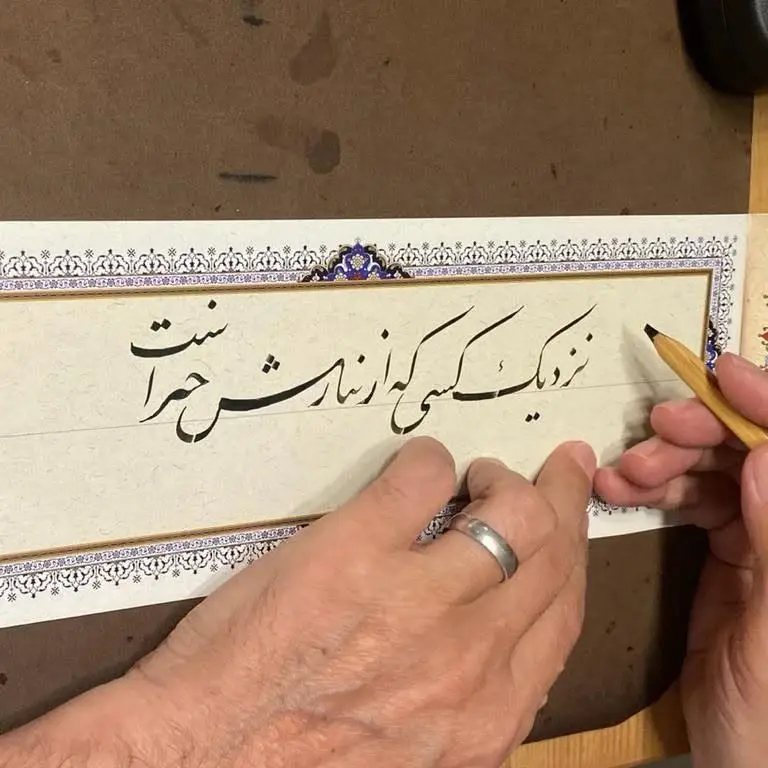 نزدیک کسی که از خبر است